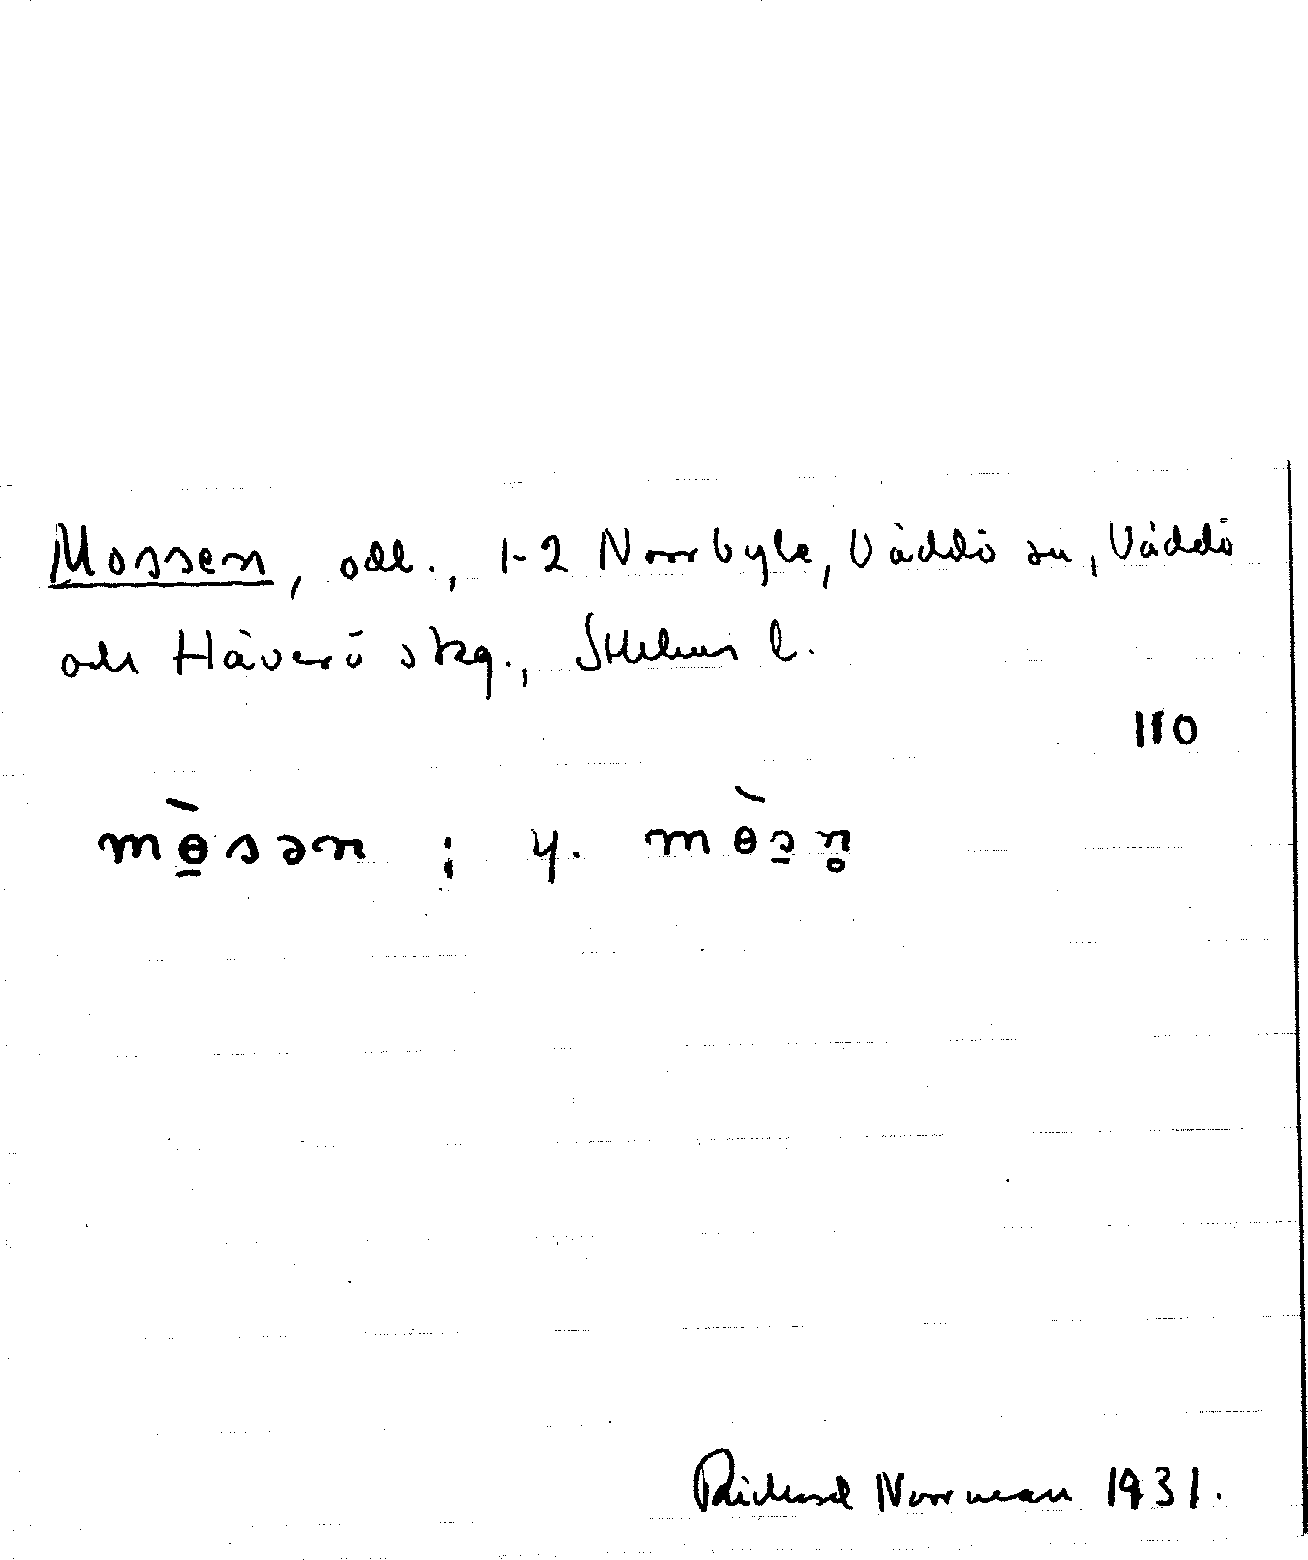 Mossen, odl., 1-2 Norrbyle, Väddö sn, Väddö
och Häverö skg., Sthlms l.
110
mɵ̱̀sən ; y. mɵ̀ə̱n̥
Richard Norrman 1931.